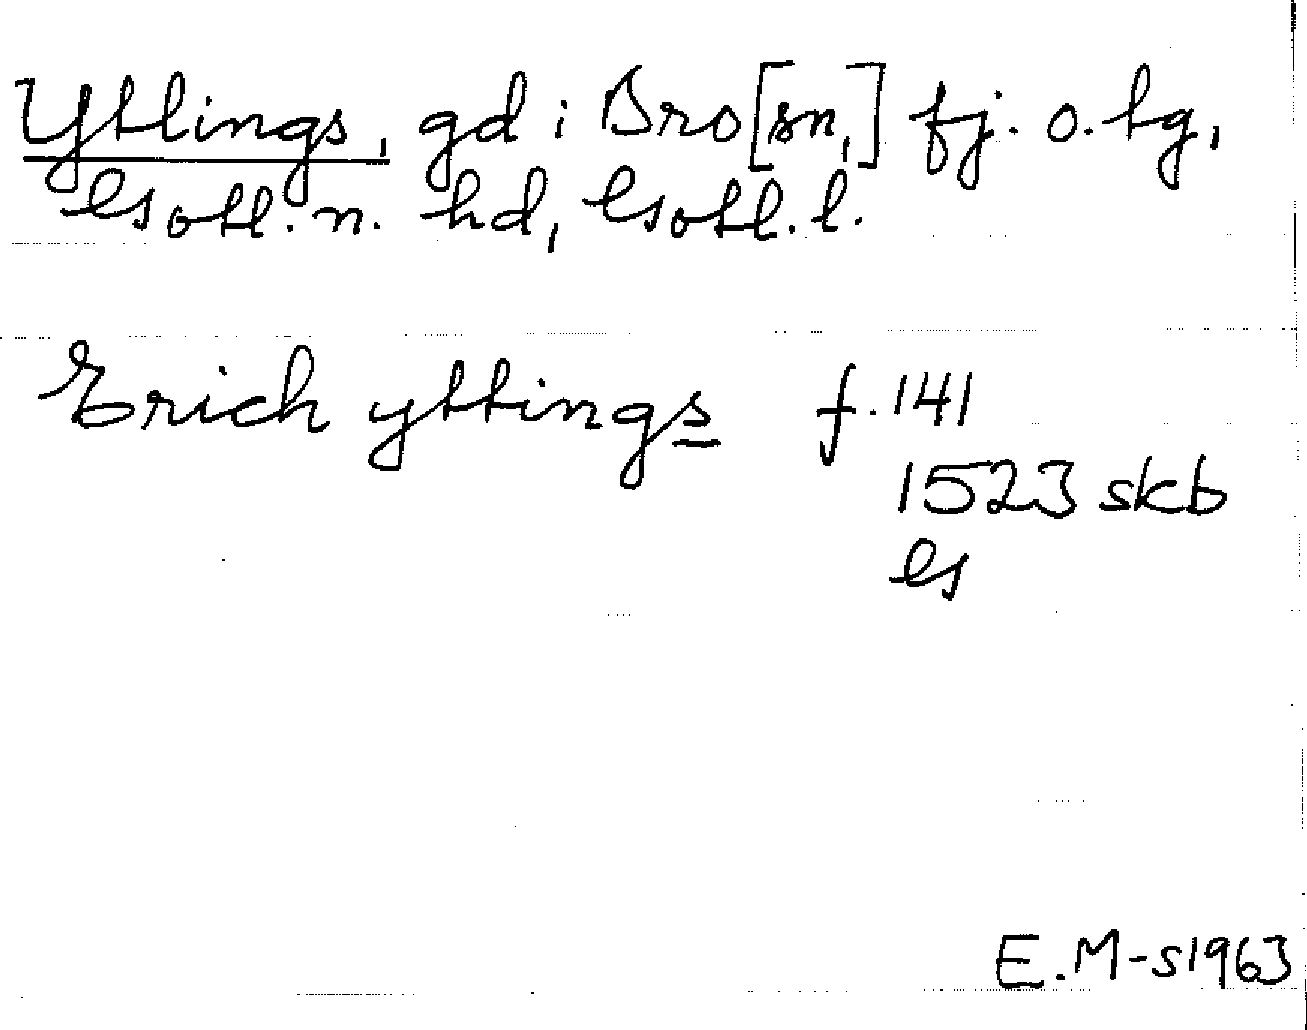 Ytlings, gd i Bro [sn,] fj. o. tg,
Gotl. n. hd, Gotl. l.
Erich yttings f. 141
1523 skb
G
E.M-s1963